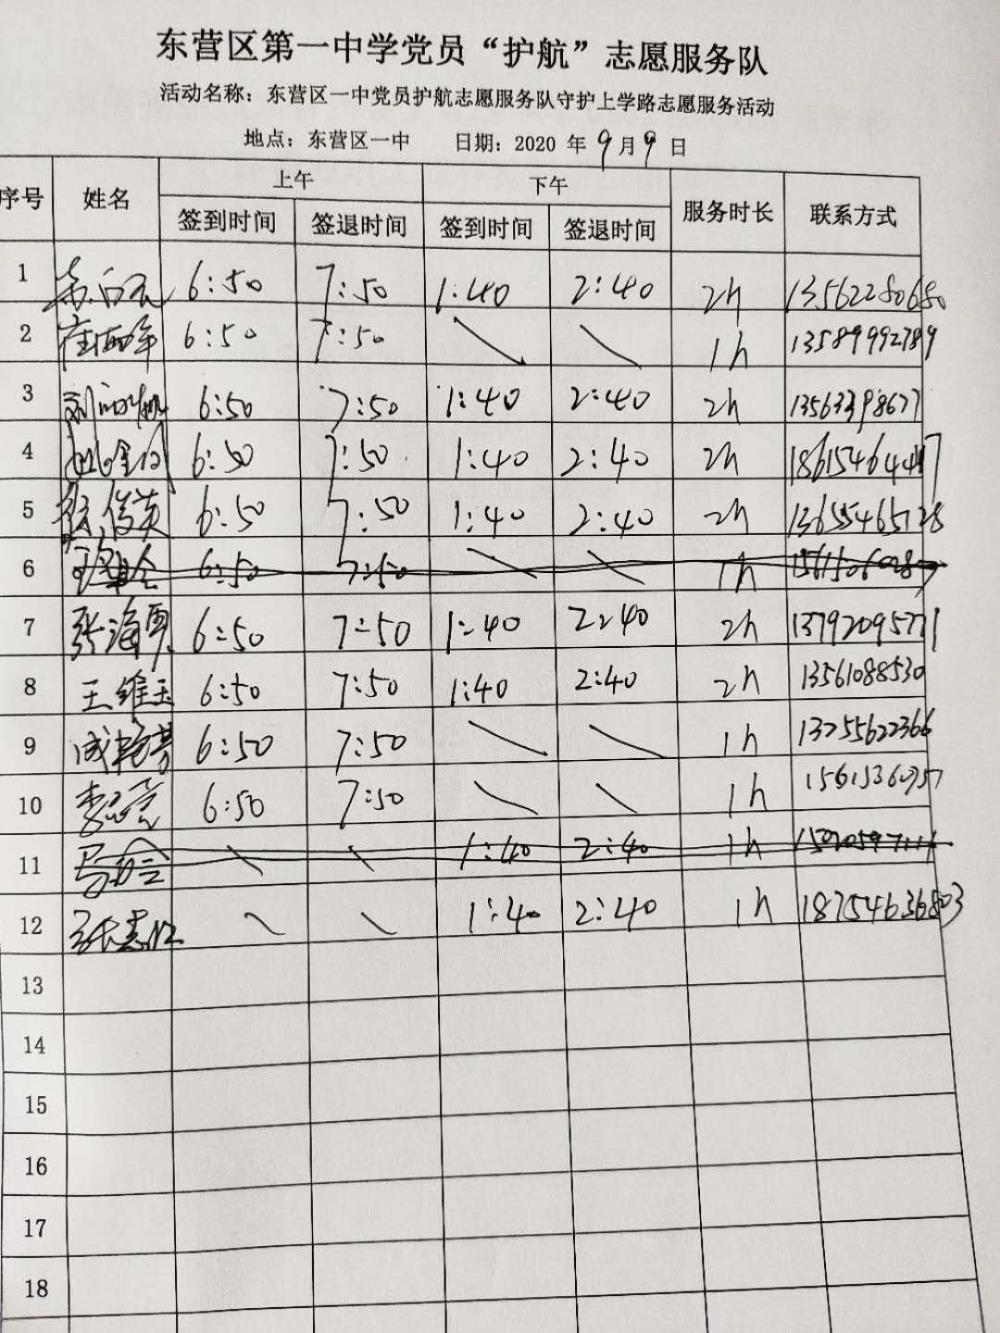 东营区第一中学党员“护航”志愿服务队
活动名称：东营区一中党员护航志愿服务队守护上学路志愿服务活动
地点：东营区一中 日期：2020 年 9 月 9 日
序号 姓名 上午 下午 服务时长 联系方式
签到时间 签退时间 签到时间 签退时间
1 6:50 7:50 1:40 2:40 2h 13562280680
2 6:50 7:50 \ \ 1h 13589992789
3 6:50 7:50 1:40 2:40 2h 13563398677
4 6:50 7:50 1:40 2:40 2h
5 徐俊英 6:50 7:50 1:40 2:40 2h 13655465128
6 6:50 7:50 \ \ 1h
7 张海军 6:50 7:50 1:40 2:40 2h 13792095771
8 王维玉 6:50 7:50 1:40 2:40 2h 13561088530
9 成艳芳 6:50 7:50 \ \ 1h 13255622366
10 6:50 7:50 \ \ 1h
11 \ \ 1:40 2:40 1h
12 \ \ 1:40 2:40 1h 18754636803
13
14
15
16
17
18